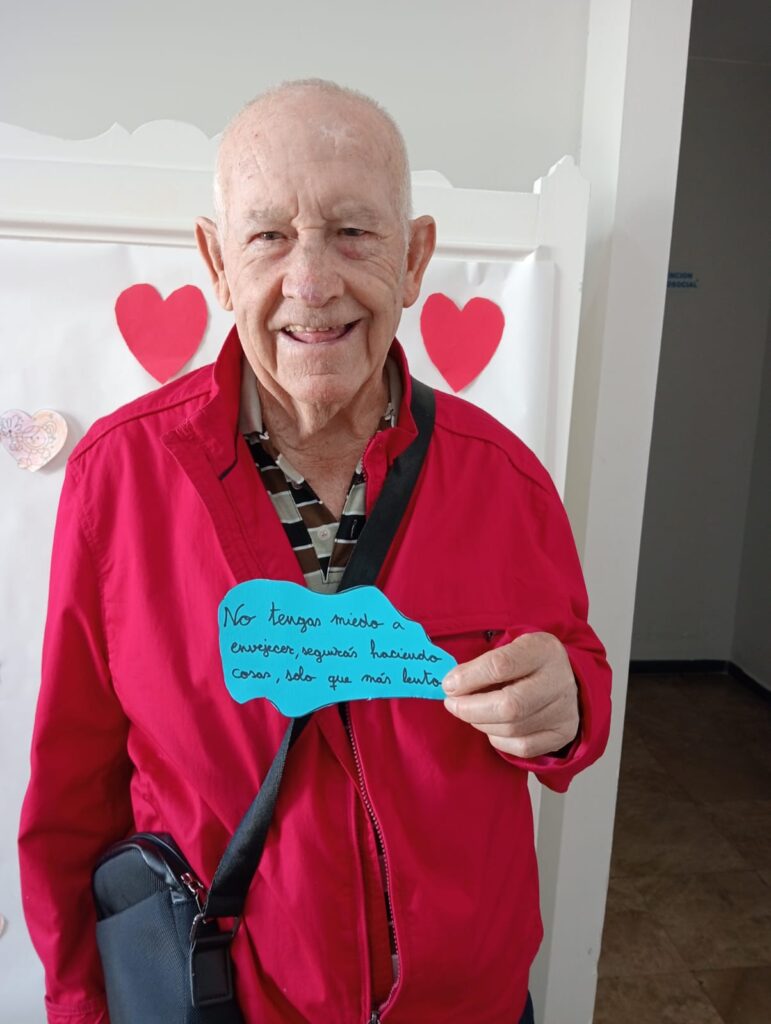 No tengas miedo a
envejecer, seguirás haciendo
cosas, solo que más lento
NCION
OSOCIAL